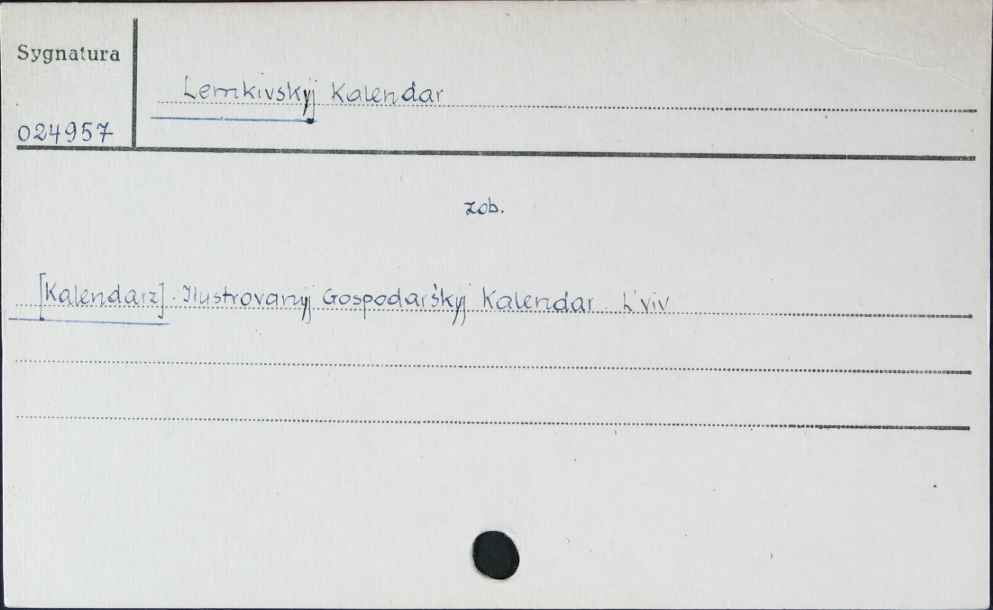 Sygnatura
Lemkivskyj Kalendar
024957
zob.
[Kalendarz]. Ilustrovanyj Gospodarśkyj Kalendar L'viv